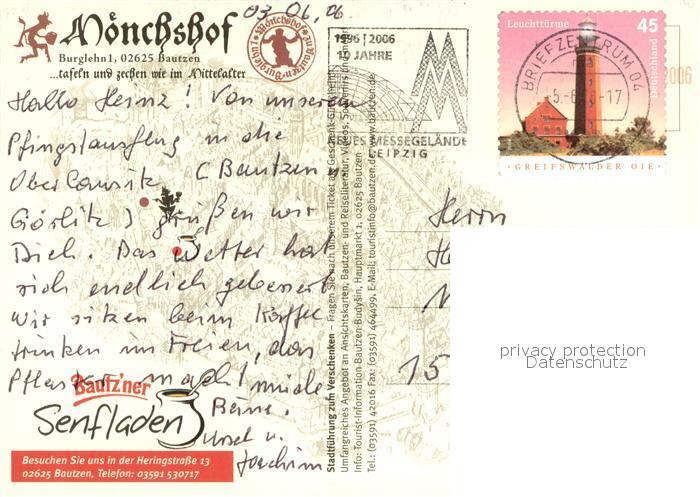 03.06.06
Mönchshof
Burglehn1, 02625 Bautzen
...tafeln und zechen wie im Mittelalter
Mönchshof zu Bautzen
1996 | 2006
JAHRE
NEUES MESSEGELÄNDE
LEIPZIG
BRIEFZENTRUM 04
-5.-6. -17
Leuchttürme
45
Deutschland
2006
· GREIFSWALDER OIE ·
Hallo Heinz! Von unserem
Pfingstausflug in die
Oberlausitz (Bautzen,
Görlitz) grüßen wir
Dich. Das Wetter hat
sich endlich gebessert
Wir sitzen beim Kaffee
trinken im Freien, das
Pflaster macht müde
Beine.
Ursel u.
Joachim
Bautz'ner
Senfladen
Besuchen Sie uns in der Heringstraße 13
02625 Bautzen, Telefon: 03591 530717
Stadtführung zum Verschenken – Fragen Sie nach unserem Ticket als Geschenk-Gutschein!
Umfangreiches Angebot an Ansichtskarten, Bautzen- und Reiseliteratur, Videos, Souvenirs und mehr
Info: Tourist-Information Bautzen-Budyšin, Hauptmarkt 1, 02625 Bautzen
Tel.: (03591) 42016 Fax: (03591) 464499, E-Mail: touristinfo@bautzen.de, www.bautzen.de
Herrn
15
privacy protection
Datenschutz